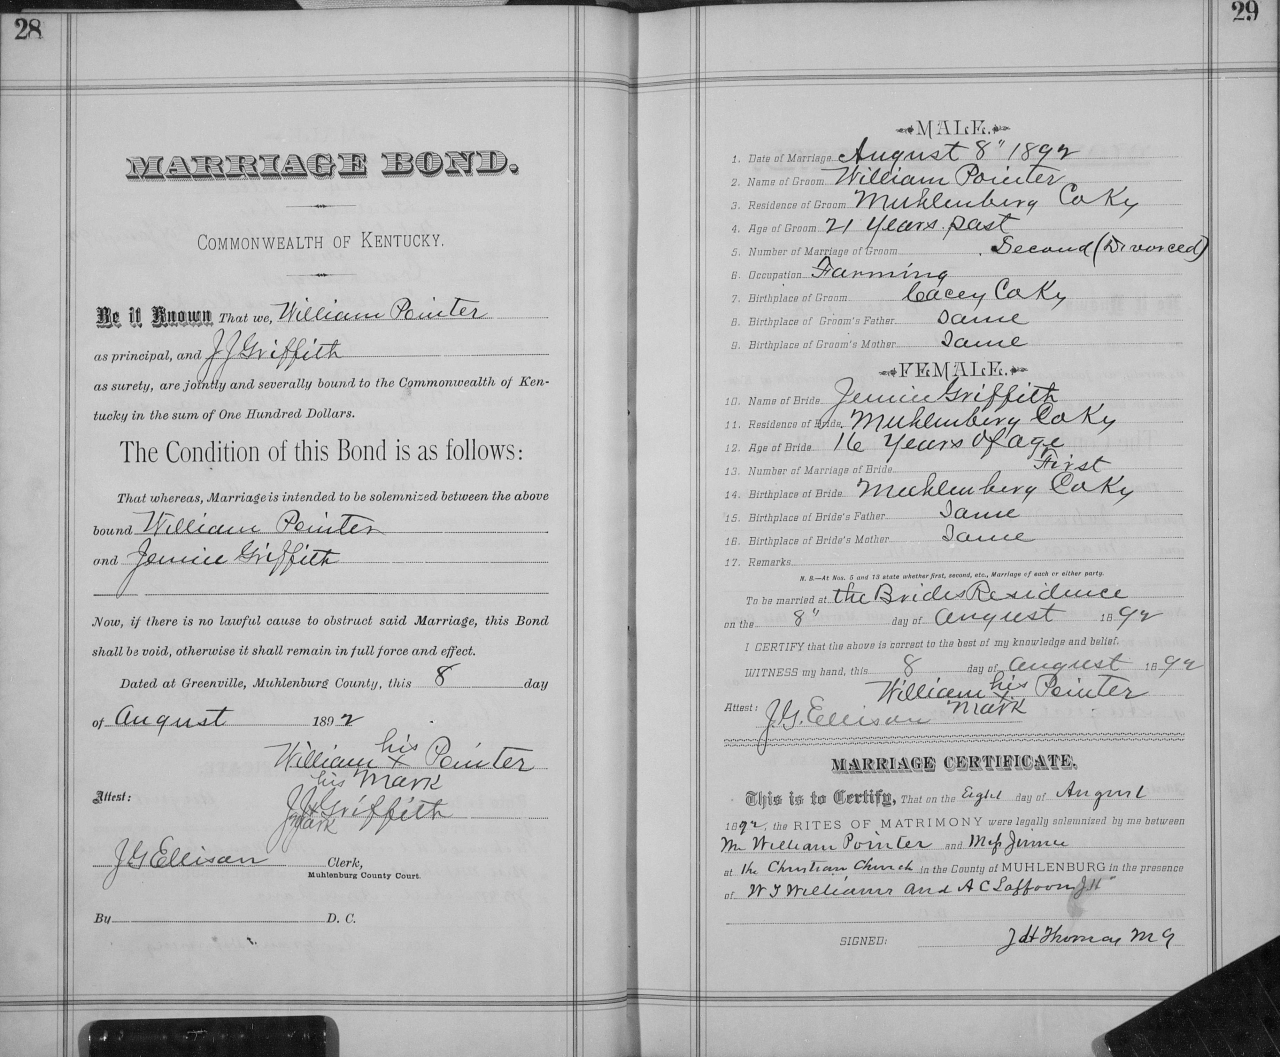 28
MARRIAGE BOND.
COMMONWEALTH OF KENTUCKY.
Be it Known That we, William Pointer
as principal, and J J Griffith
as surety, are jointly and severally bound to the Commonwealth of Ken-
tucky in the sum of One Hundred Dollars.
The Condition of this Bond is as follows:
That whereas, Marriage is intended to be solemnized between the above
bound William Pointer
and Jennie Griffith
Now, if there is no lawful cause to obstruct said Marriage, this Bond
shall be void, otherwise it shall remain in full force and effect.
Dated at Greenville, Muhlenburg County, this 8 day
of August 1892
William his x Pointer
mark
Attest: his
J J x Griffith
mark
J G Ellison Clerk,
Muhlenburg County Court.
By D. C.
29
MALE.
1. Date of Marriage August 8" 1892
2. Name of Groom William Pointer
3. Residence of Groom Muhlenberg Co Ky
4. Age of Groom 21 Years past
5. Number of Marriage of Groom Second (Divorced)
6. Occupation Farming
7. Birthplace of Groom Cacey Co Ky
8. Birthplace of Groom's Father Same
9. Birthplace of Groom's Mother Same
FEMALE.
10. Name of Bride Jennie Griffith
11. Residence of Bride Muhlenberg Co Ky
12. Age of Bride 16 Years of age
13. Number of Marriage of Bride First
14. Birthplace of Bride Muhlenberg Co Ky
15. Birthplace of Bride's Father Same
16. Birthplace of Bride's Mother Same
17. Remarks
N. B.—At Nos. 5 and 13 state whether first, second, etc., Marriage of each or either party.
To be married at the Brides Residence
on the 8" day of August 1892
I CERTIFY that the above is correct to the best of my knowledge and belief.
WITNESS my hand, this 8 day of August 1892
William his Pointer
mark
Attest: J. G. Ellison
MARRIAGE CERTIFICATE.
This is to Certify, That on the Eight day of August
1892, the RITES OF MATRIMONY were legally solemnized by me between
Mr William Pointer and Miss Jennie
at the Christian Church in the County of MUHLENBURG in the presence
of W T Williams and A C Laffoon
SIGNED: J H Thomas M G